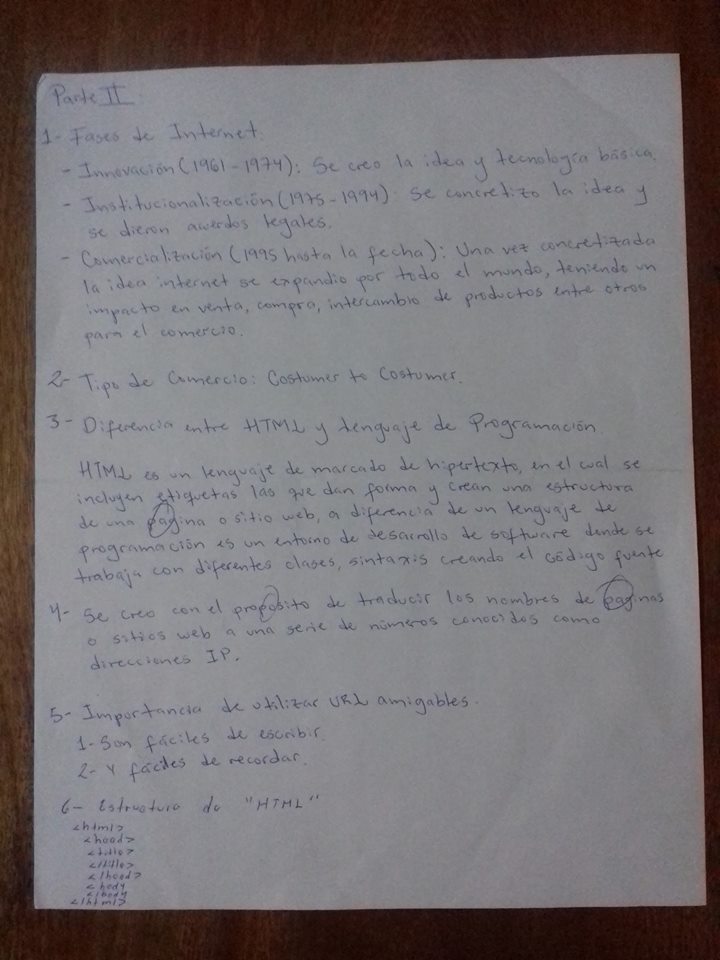 Parte II
1- Fases de Internet.
- Innovación (1961-1974): Se creo la idea y tecnología básica.
- Institucionalización (1975-1994): Se concretizo la idea y
se dieron acuerdos legales.
- Comercialización (1995 hasta la fecha): Una vez concretizada
la idea internet se expandio por todo el mundo, teniendo un
impacto en venta, compra, intercambio de productos entre otros
para el comercio.
2- Tipo de Comercio: Costumer to Costumer.
3- Diferencia entre HTML y Lenguaje de Programación.
HTML es un lenguaje de marcado de hipertexto, en el cual se
incluyen etiquetas las que dan forma y crean una estructura
de una pagina o sitio web, a diferencia de un lenguaje de
programación es un entorno de desarrollo de software donde se
trabaja con diferentes clases, sintaxis creando el código fuente
4- Se creo con el proposito de traducir los nombres de paginas
o sitios web a una serie de números conocidos como
direcciones IP.
5- Importancia de utilizar URL amigables.
1- Son fáciles de escribir.
2- Y fáciles de recordar.
6- Estructura de "HTML"
<html>
<head>
<title>
</title>
</head>
<body
</body
</html>